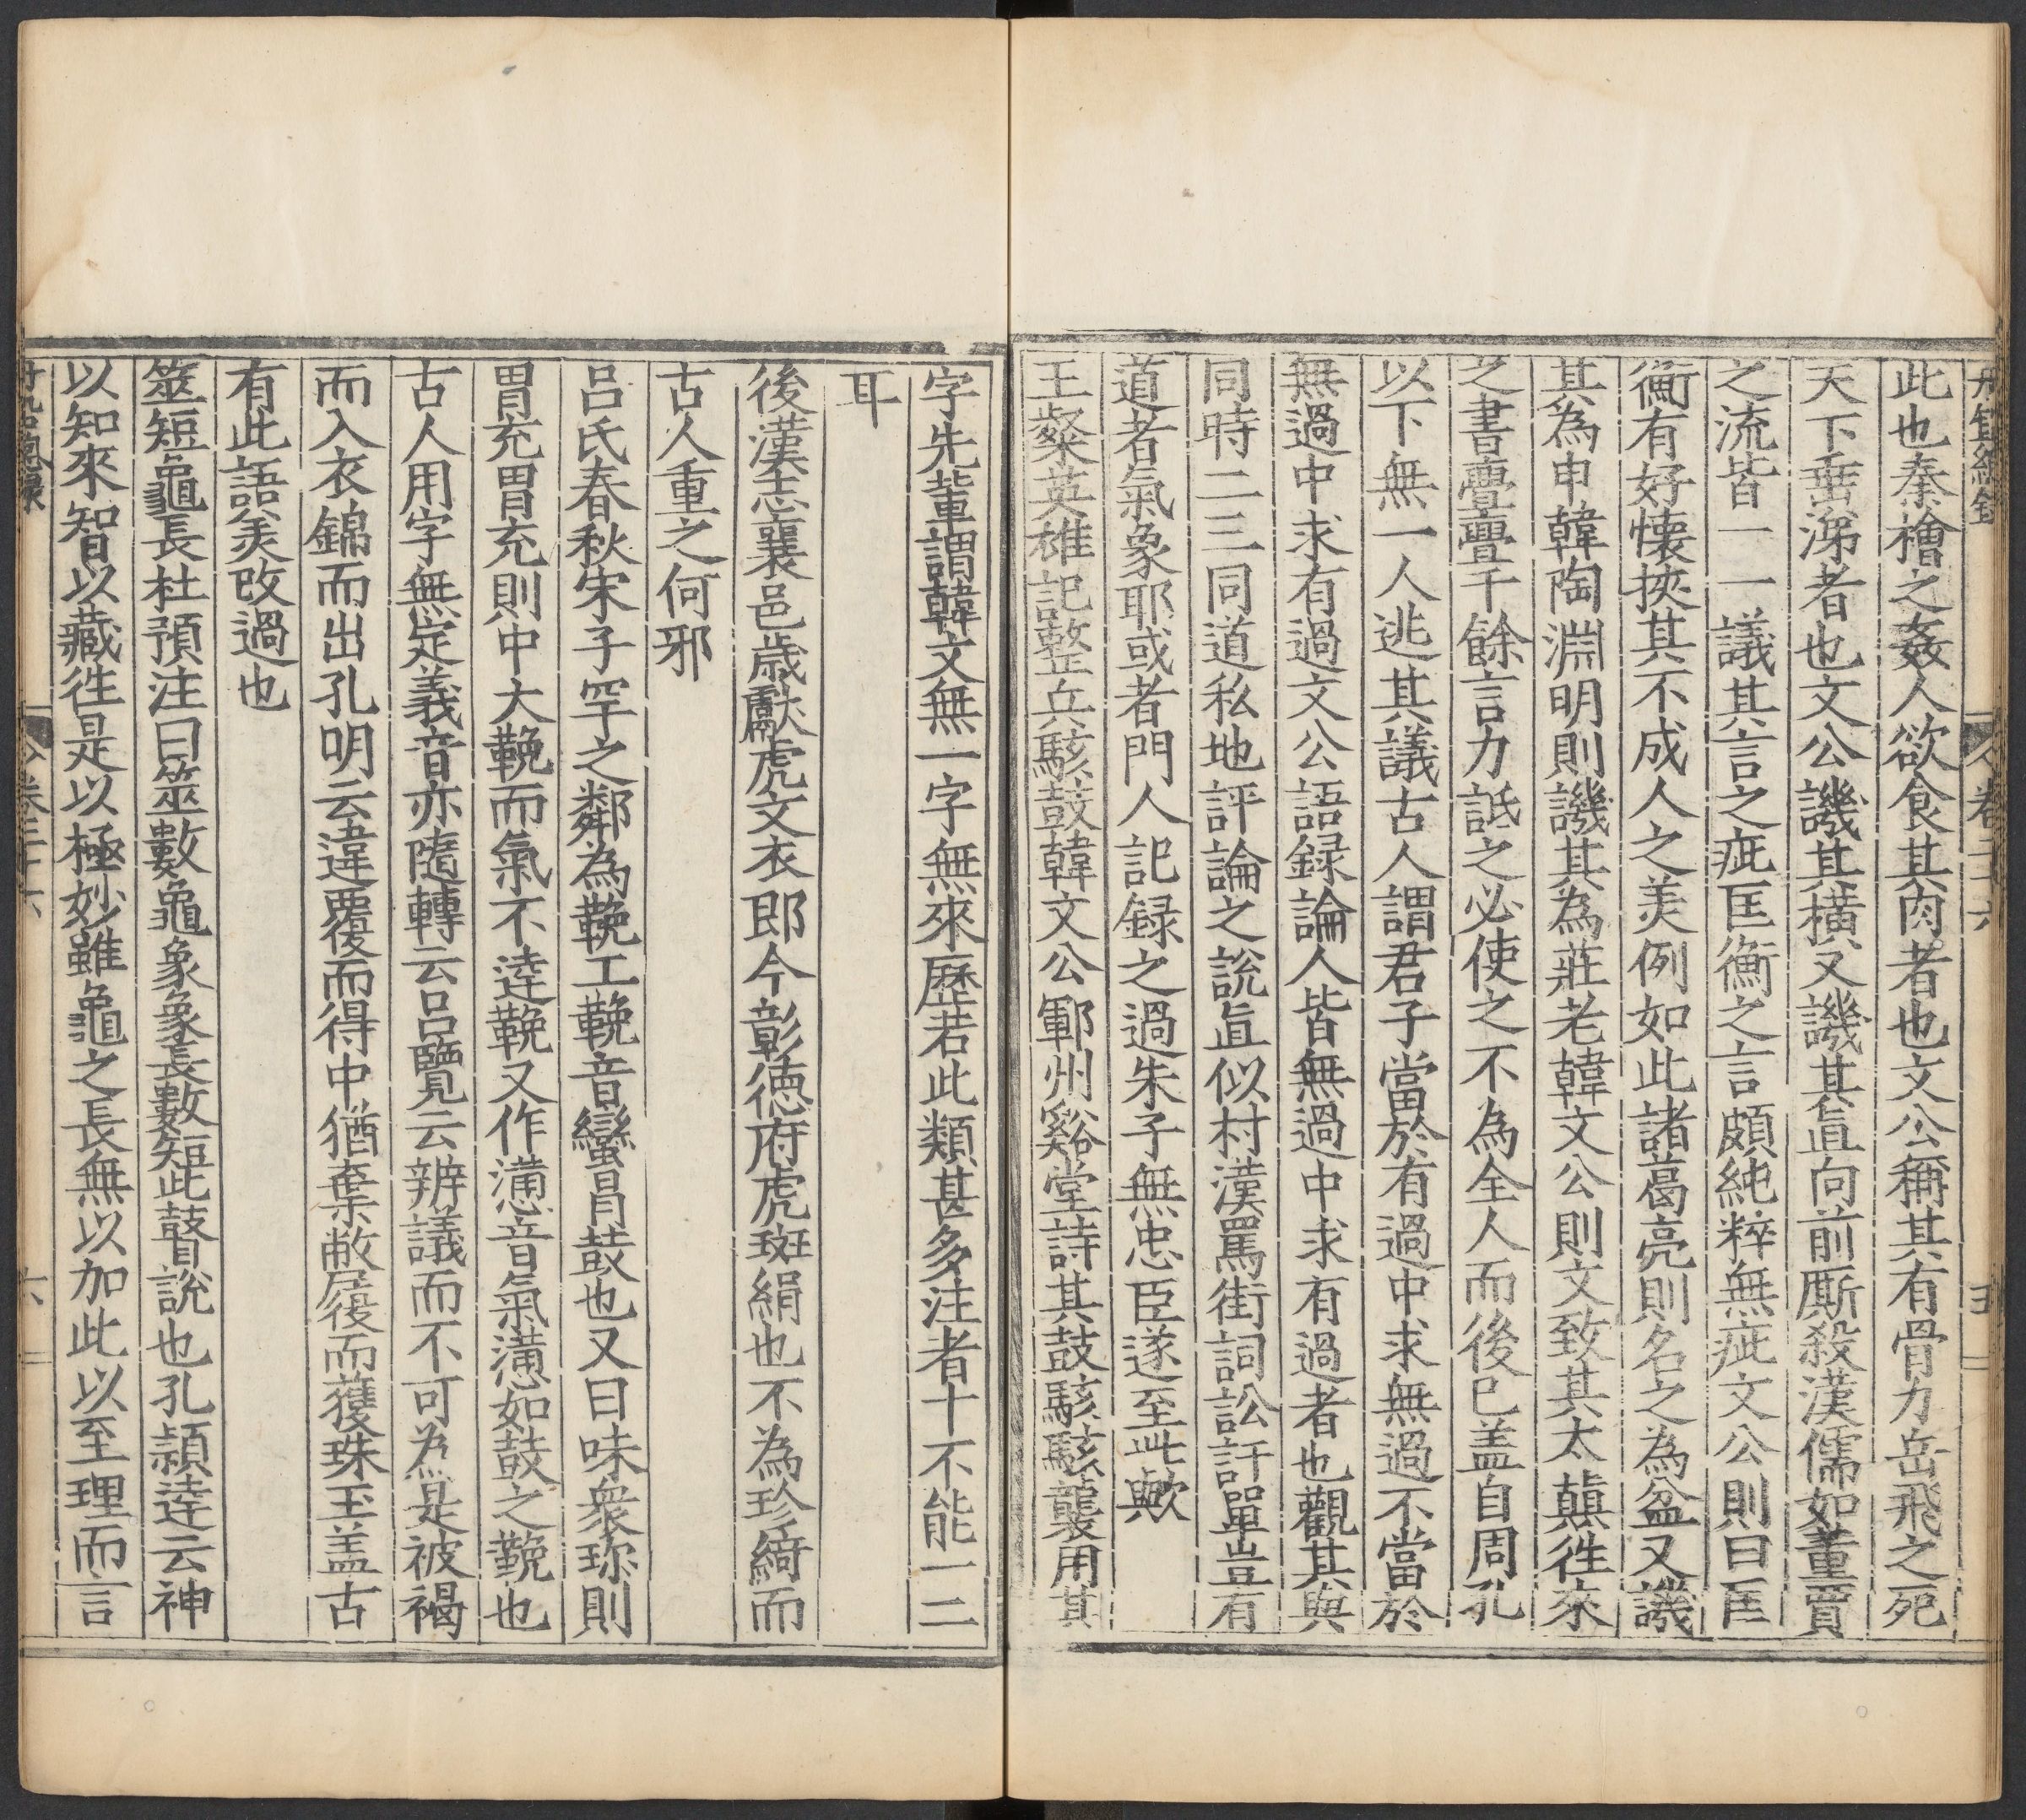 丹鉛總錄 卷二十六 五
此也秦檜之姦人欲食其肉者也文公稱其有骨力岳飛之死
天下垂涕者也文公譏其橫又譏其直向前廝殺漢儒如董賈
之流皆一一議其言之疵匡衡之言頗純粹無疵文公則曰匡
衡有好懷挾其不成人之美例如此諸葛亮則名之為盆又譏
其為申韓陶淵明則譏其為莊老韓文公則文致其太顛徃來
之書亹亹千餘言力詆之必使之不為全人而後已盖自周孔
以下無一人逃其議古人謂君子當於有過中求無過不當於
無過中求有過文公語録論人皆無過中求有過者也觀其與
同時二三同道私地評論之說直似村漢罵街詞訟訐單豈有
道者氣象耶或者門人記録之過朱子無忠臣遂至此歟
王粲英雄記整兵駭鼓韓文公鄆州谿堂詩其鼓駭駭襲用其
字先輩謂韓文無一字無來歷若此類甚多注者十不能一二
耳
後漢志襄邑歳獻虎文衣郎今彰徳府虎斑絹也不為珍綺而
古人重之何邪
呂氏春秋宋子罕之鄰為鞔工鞔音蠻冐鼓也又曰味衆珎則
胃充胃充則中大鞔而氣不逹鞔又作懣音氣懣如鼓之鞔也
古人用字無定義音亦隨轉云呂覽云辨議而不可為是被褐
而入衣錦而出孔明云違覆而得中猶棄敝屣而獲珠玉盖古
有此語羙改過也
筮短龜長杜預注曰筮數龜象象長數短此瞽說也孔頴逹云神
以知來智以藏徃是以極妙雖龜之長無以加此以至理而言
丹鉛總録 卷二十六 六